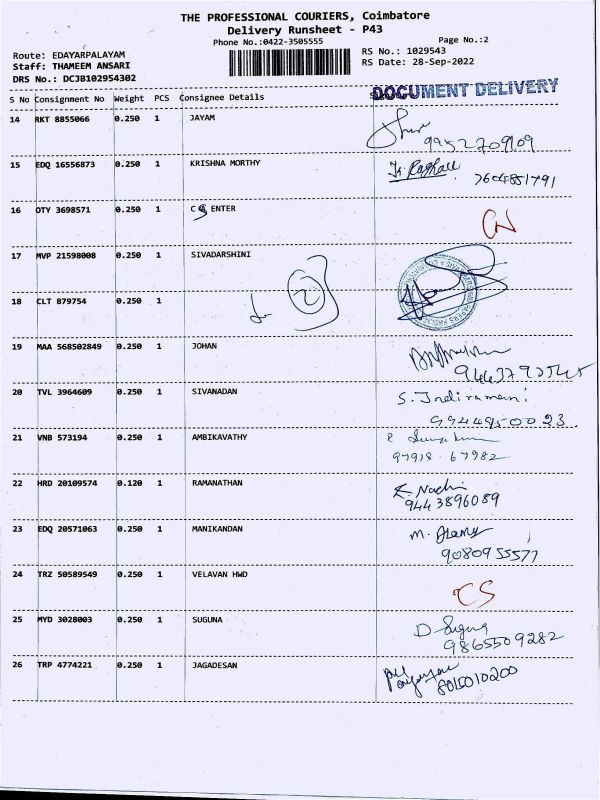 THE PROFESSIONAL COURIERS, Coimbatore
Delivery Runsheet - P43
Phone No.:0422-3505555
Page No.:2
Route: EDAYARPALAYAM
RS No.: 1029543
Staff: THAMEEM ANSARI
RS Date: 28-Sep-2022
DRS No.: DCJB102954302
DOCUMENT DELIVERY
S No Consignment No Weight PCS Consignee Details
14 RKT 8855066 0.250 1 JAYAM
9952709109
15 EDQ 16556873 0.250 1 KRISHNA MORTHY
7604851791
16 OTY 3698571 0.250 1 C ENTER
17 MVP 21598008 0.250 1 SIVADARSHINI
2
18 CLT 879754 0.250 1
19 MAA 568502849 0.250 1 JOHAN
20 TVL 3964609 0.250 1 SIVANADAN
S. Indiramani
9944950023
21 VNB 573194 0.250 1 AMBIKAVATHY
97918 67982
22 HRD 20109574 0.120 1 RAMANATHAN
9443896089
23 EDQ 20571063 0.250 1 MANIKANDAN
9080955577
24 TRZ 50589549 0.250 1 VELAVAN HWD
CS
25 MYD 3028003 0.250 1 SUGUNA
D Suguna
9865509282
26 TRP 4774221 0.250 1 JAGADESAN
8015010200